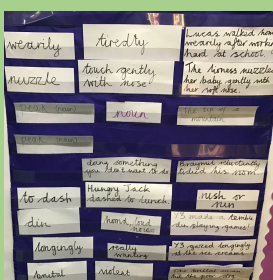 wearily
tiredly
Lucas walked home
wearily after working
hard at school
nuzzle
touch gently
with nose
The lioness nuzzled
her baby gently with
her soft nose.
peak (noun)
noun
The tip of a
mountain
peak (noun)
doing something
you don't want to do
reluctantly
tidied his room
to dash
Hungry Jack
dashed to lunch.
rush or
run
din
horrid loud
noise
Y3 made a
din playing games!
longingly
really
wanting
Y3 gazed longingly
at the ice creams
brutal
violent